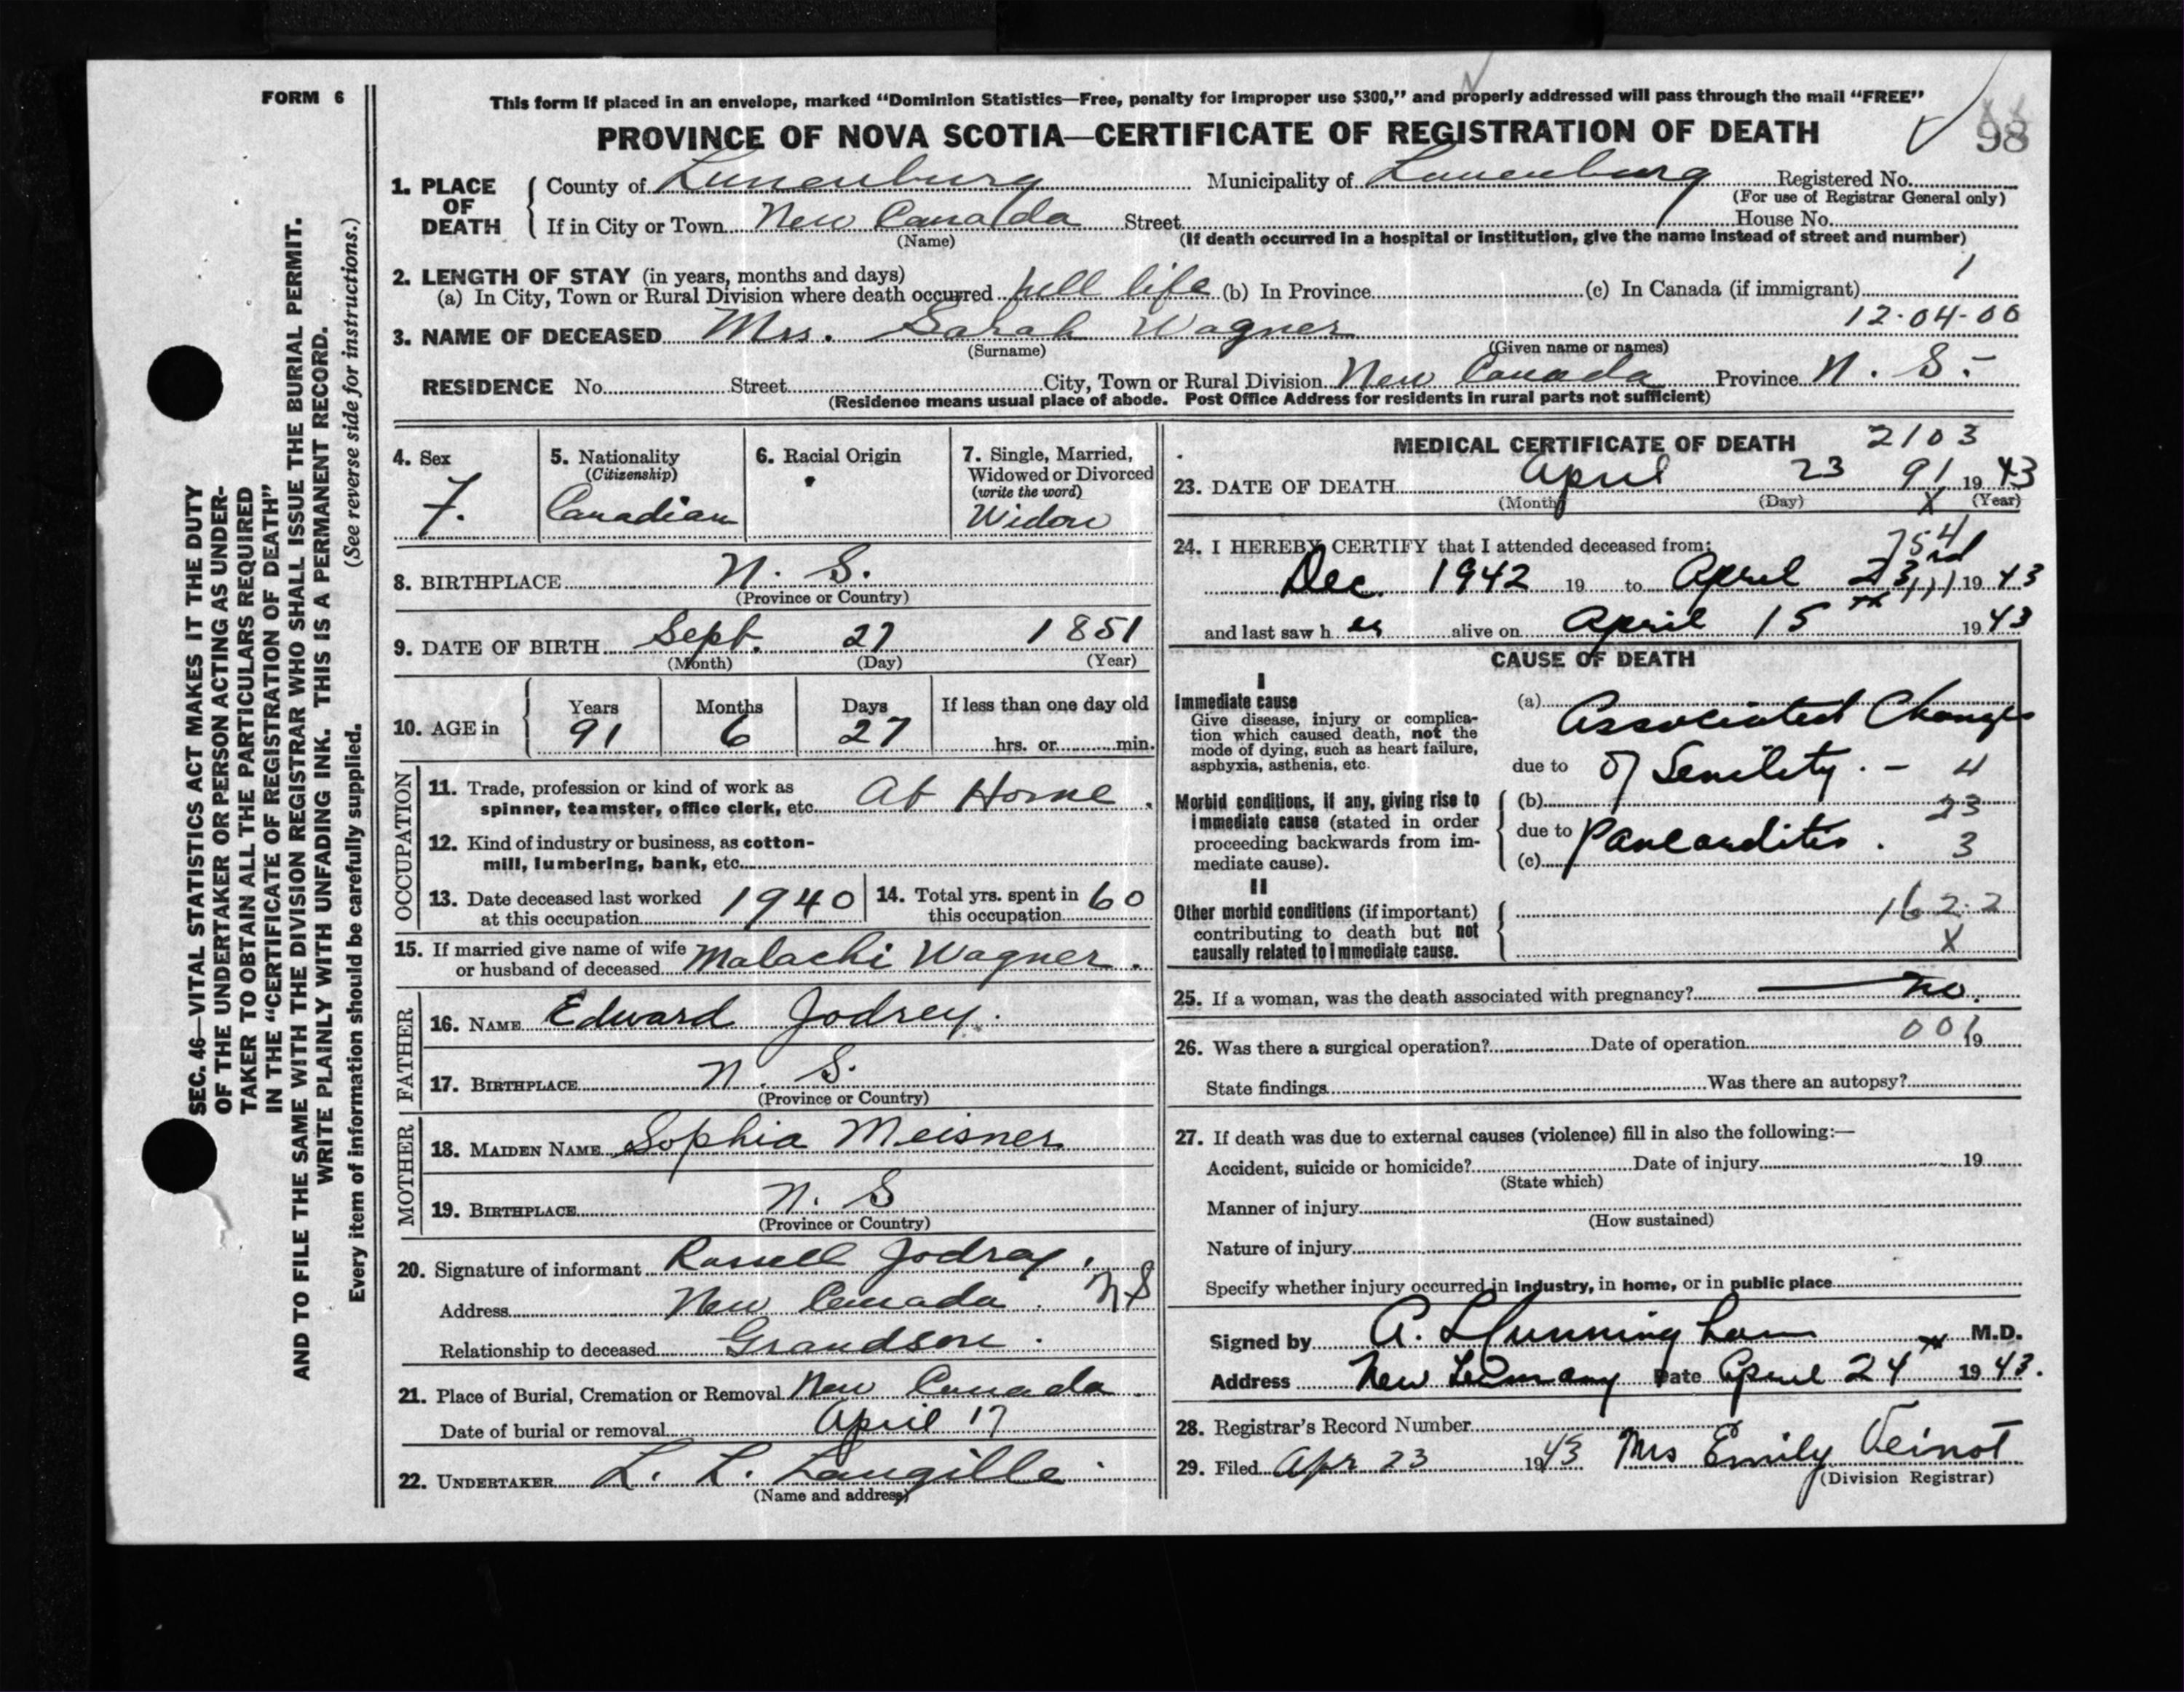 FORM 6
This form if placed in an envelope, marked “Dominion Statistics—Free, penalty for improper use $300,” and properly addressed will pass through the mail “FREE”
PROVINCE OF NOVA SCOTIA—CERTIFICATE OF REGISTRATION OF DEATH
98
1. PLACE OF DEATH
County of Lunenburg Municipality of Lunenburg Registered No.
(For use of Registrar General only)
If in City or Town New Canada Street House No.
(Name) (If death occurred in a hospital or institution, give the name instead of street and number)
2. LENGTH OF STAY (in years, months and days) 1
(a) In City, Town or Rural Division where death occurred full life (b) In Province (c) In Canada (if immigrant)
12-04-00
3. NAME OF DECEASED Mrs. Sarah Wagner
(Surname) (Given name or names)
RESIDENCE No. Street City, Town or Rural Division New Canada Province N. S.
(Residence means usual place of abode. Post Office Address for residents in rural parts not sufficient)
4. Sex
F.
5. Nationality
(Citizenship)
Canadian
6. Racial Origin
7. Single, Married,
Widowed or Divorced
(write the word)
Widow
8. BIRTHPLACE N. S.
(Province or Country)
9. DATE OF BIRTH Sept. 27 1851
(Month) (Day) (Year)
10. AGE in
Years Months Days If less than one day old
91 6 27 hrs. or min.
OCCUPATION
11. Trade, profession or kind of work as
spinner, teamster, office clerk, etc. At Home.
12. Kind of industry or business, as cotton-
mill, lumbering, bank, etc.
13. Date deceased last worked
at this occupation 1940
14. Total yrs. spent in
this occupation 60
15. If married give name of wife
or husband of deceased Malachi Wagner.
FATHER
16. NAME Edward Jodrey.
17. BIRTHPLACE N. S.
(Province or Country)
MOTHER
18. MAIDEN NAME Sophia Meisner
19. BIRTHPLACE N. S
(Province or Country)
20. Signature of informant Russell Jodrey.
Address New Canada. N S
Relationship to deceased Grandson.
21. Place of Burial, Cremation or Removal New Canada.
Date of burial or removal April 17
22. UNDERTAKER L. L. Langille.
(Name and address)
MEDICAL CERTIFICATE OF DEATH 2103
23. DATE OF DEATH April 23 91 1943
(Month) (Day) X (Year)
754
24. I HEREBY CERTIFY that I attended deceased from:
Dec. 1942 19 to April 23rd 1943
and last saw her alive on April 15th 1943
CAUSE OF DEATH
I
Immediate cause
Give disease, injury or complica-
tion which caused death, not the
mode of dying, such as heart failure,
asphyxia, asthenia, etc.
(a) Associated Changes
due to of Senility. - 4
Morbid conditions, if any, giving rise to
immediate cause (stated in order
proceeding backwards from im-
mediate cause).
(b) 23
due to Pancarditis. 3
(c)
II
Other morbid conditions (if important)
contributing to death but not
causally related to immediate cause.
162.2
X
25. If a woman, was the death associated with pregnancy? no.
001
26. Was there a surgical operation? Date of operation 19
State findings Was there an autopsy?
27. If death was due to external causes (violence) fill in also the following:—
Accident, suicide or homicide? Date of injury 19
(State which)
Manner of injury
(How sustained)
Nature of injury
Specify whether injury occurred in industry, in home, or in public place
Signed by M.D.
Address New Germany Date April 24th 1943.
28. Registrar's Record Number
29. Filed Apr 23 1943 Mrs Emily Veinot
(Division Registrar)
SEC. 46—VITAL STATISTICS ACT MAKES IT THE DUTY
OF THE UNDERTAKER OR PERSON ACTING AS UNDER-
TAKER TO OBTAIN ALL THE PARTICULARS REQUIRED
IN THE “CERTIFICATE OF REGISTRATION OF DEATH”
AND TO FILE THE SAME WITH THE DIVISION REGISTRAR WHO SHALL ISSUE THE BURIAL PERMIT.
WRITE PLAINLY WITH UNFADING INK. THIS IS A PERMANENT RECORD.
Every item of information should be carefully supplied. (See reverse side for instructions.)